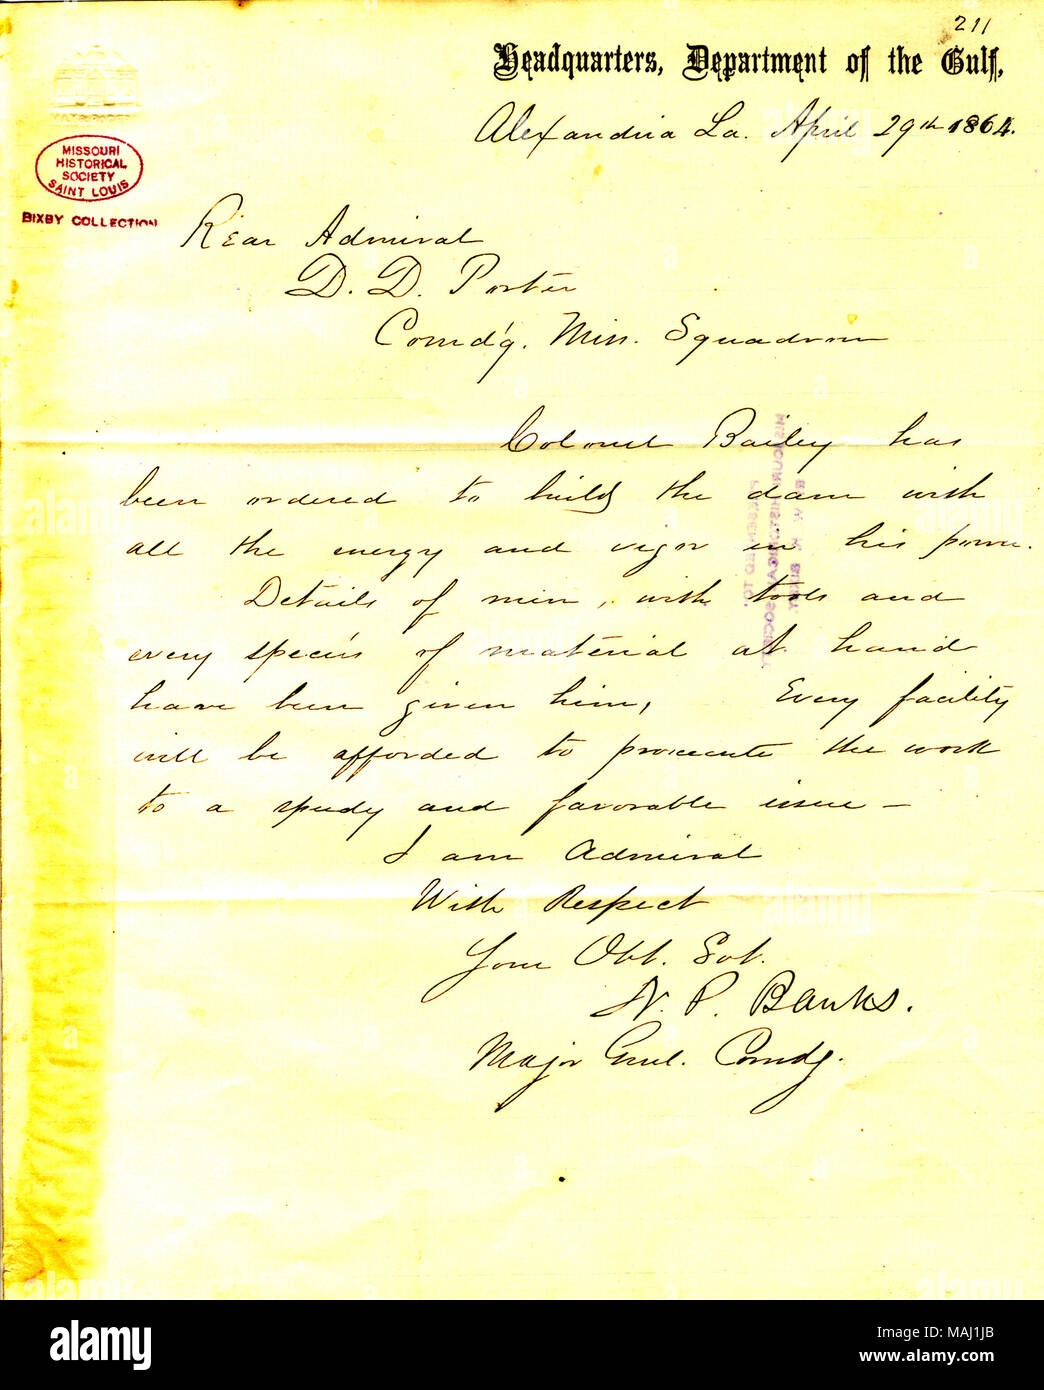 211
Headquarters, Department of the Gulf,
Alexandria La. April 29th 1864.
MISSOURI
HISTORICAL
SOCIETY
SAINT LOUIS
BIXBY COLLECTION
Rear Admiral
D. D. Porter
Comd'g. Miss. Squadron
Colonel Bailey has
been ordered to build the dam with
all the energy and vigor in his power.
Details of men, with tools and
every species of material at hand
have been given him, Every facility
will be afforded to prosecute the work
to a speedy and favorable issue –
I am Admiral
With Respect
Your Obt. Svt.
N. P. Banks.
Major Genl. Comdg.
PRESENTED TO
MISSOURI HISTORICAL SOCIETY
BY W. K. BIXBY
alamy
Image ID: MAJ1JB
www.alamy.com